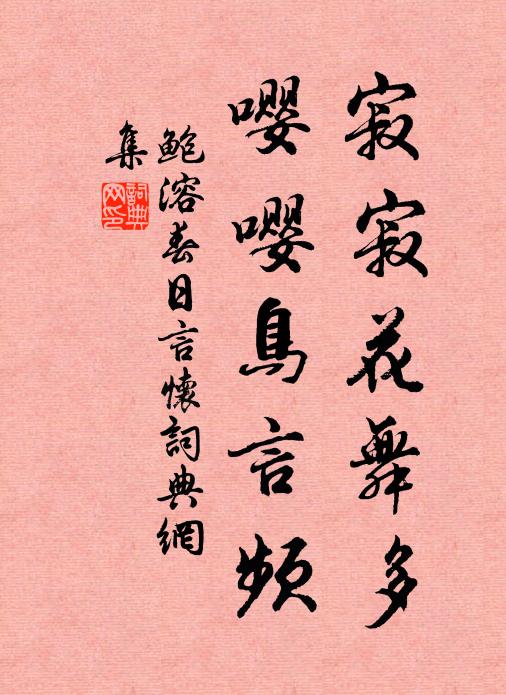 寂寂花舞多
嚶嚶鳥言頻
鮑溶春日言懷詞典網
集
詞典网印